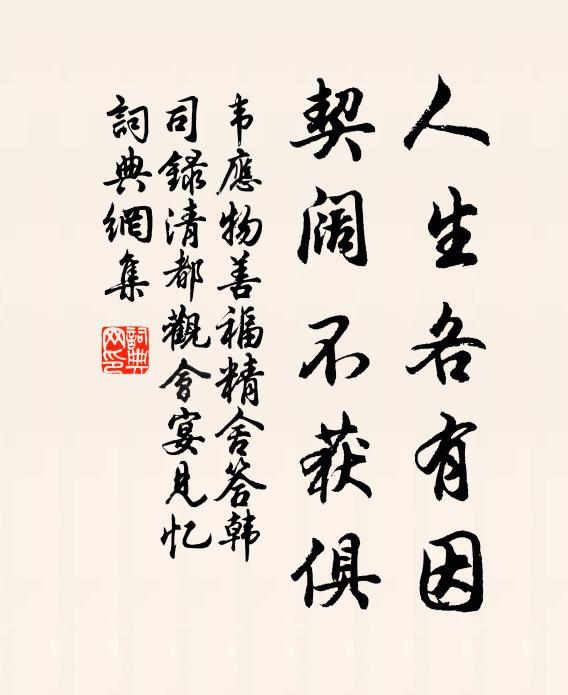 人生各有因
契阔不获俱
韦應物善福精舍答韩
司録清都觀會宴见忆
詞典網集
詞典网印